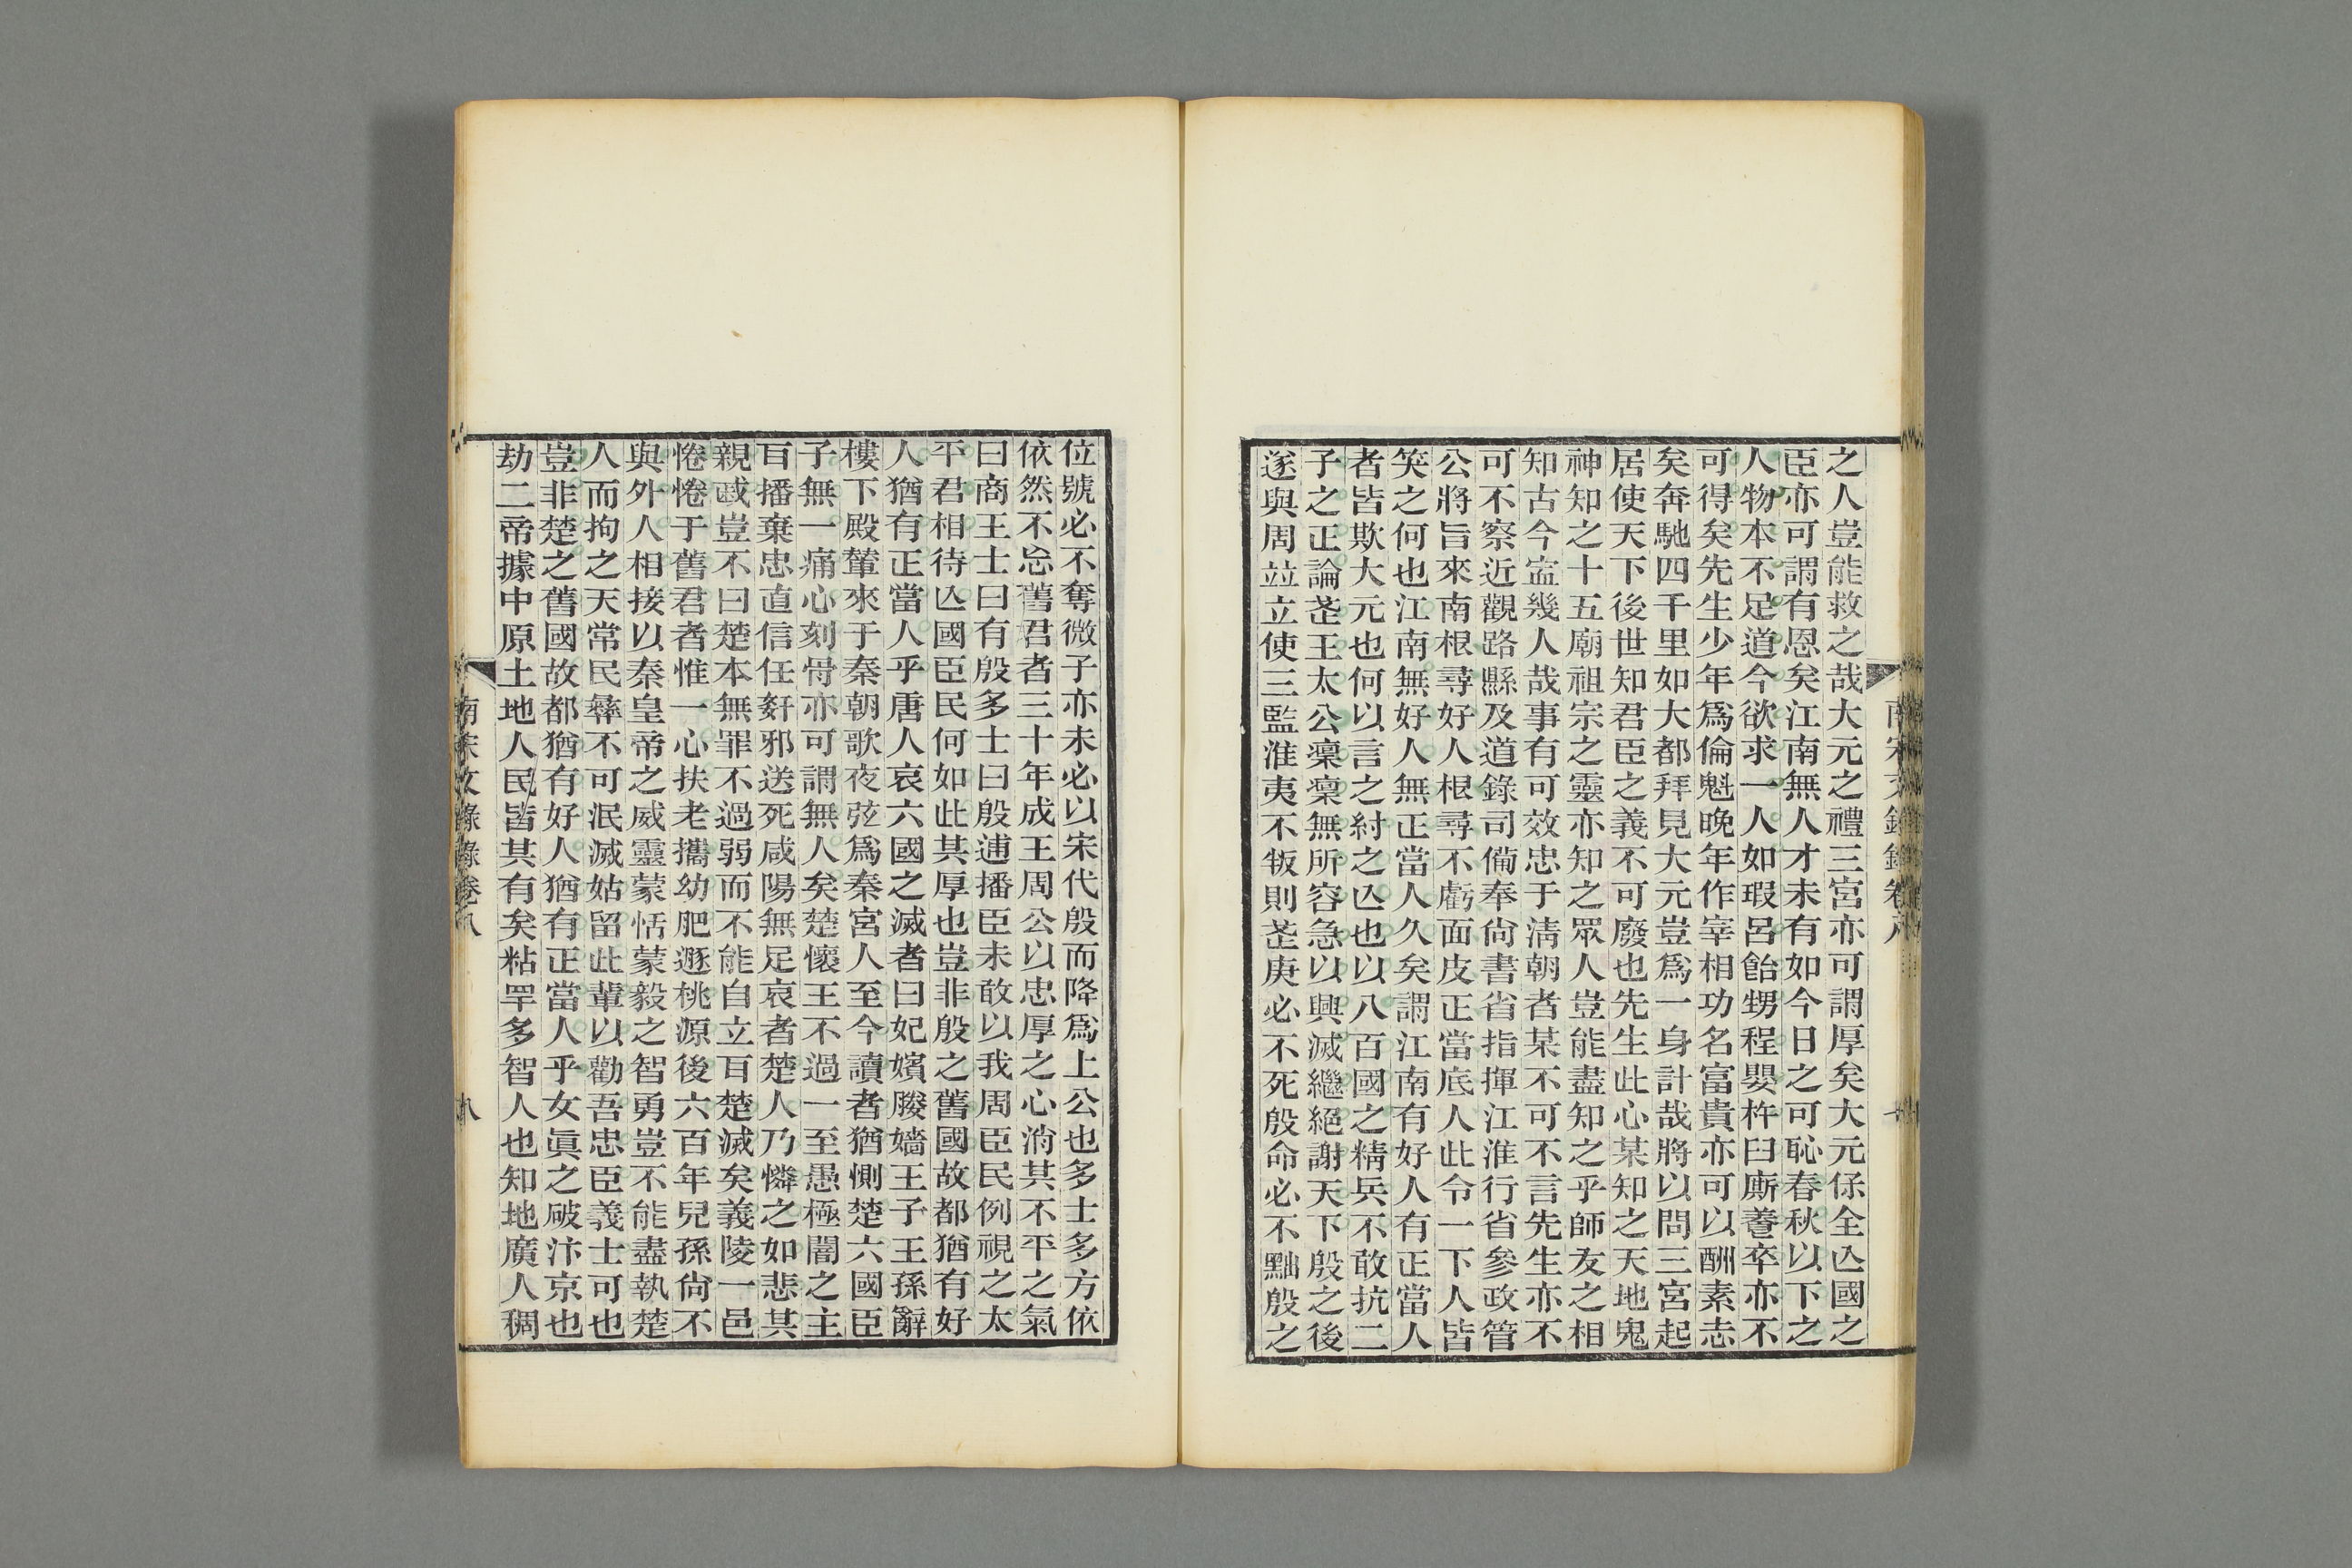 之人豈能救之哉大元之禮三宮亦可謂厚矣大元伾全亾國之
臣亦可謂有恩矣江南無人才未有如今日之可恥春秋以下之
人物本不足道今欲求一人如瑕呂飴甥程嬰杵臼廝養卒亦不
可得矣先生少年爲倫魁晚年作宰相功名富貴亦可以酬素志
矣奔馳四千里如大都拜見大元豈爲一身計哉將以問三宮起
居使天下後世知君臣之義不可廢也先生此心某知之天地鬼
神知之十五廟祖宗之靈亦知之眾人豈能盡知之乎師友之相
知古今寍幾人哉事有可效忠于淸朝者某不可不言先生亦不
可不察近觀路縣及道錄司僃奉尙書省指揮江淮行省參政管
公將旨來南根尋好人根尋不虧面皮正當底人此令一下人皆
笑之何也江南無好人無正當人久矣謂江南有好人有正當人
者皆欺大元也何以言之紂之亾也以八百國之精兵不敢抗二
子之正論武王太公凜凜無所容急以興滅繼絕謝天下殷之後
遂與周竝立使三監淮夷不叛則武庚必不死殷命必不黜殷之
位號必不奪微子亦未必以宋代殷而降爲上公也多士多方依
依然不忘舊君者三十年成王周公以忠厚之心消其不平之氣
曰商王士曰有殷多士曰殷逋播臣未敢以我周臣民例視之太
平君相待亾國臣民何如此其厚也豈非殷之舊國故都猶有好
人猶有正當人乎唐人哀六國之滅者曰妃嬪媵嬙王子王孫辭
樓下殿輦來于秦朝歌夜弦爲秦宮人至今讀者猶惻楚六國臣
子無一痛心刻骨亦可謂無人矣楚懷王不過一至愚極闇之主
百播棄忠直信任姦邪送死咸陽無足哀者楚人乃憐之如悲其
親戚豈不曰楚本無罪不過弱而不能自立百楚滅矣義陵一邑
惓惓于舊君者惟一心扶老攜幼肥遯桃源後六百年兒孫尙不
與外人相接以秦皇帝之威靈蒙恬蒙毅之智勇豈不能盡執楚
人而拘之天常民彝不可泯滅姑留此輩以勸吾忠臣義士可也
豈非楚之舊國故都猶有好人猶有正當人乎女眞之破汴京也
劫二帝據中原土地人民皆其有矣粘罕多智人也知地廣人稠
南宋文錄錄卷八
八